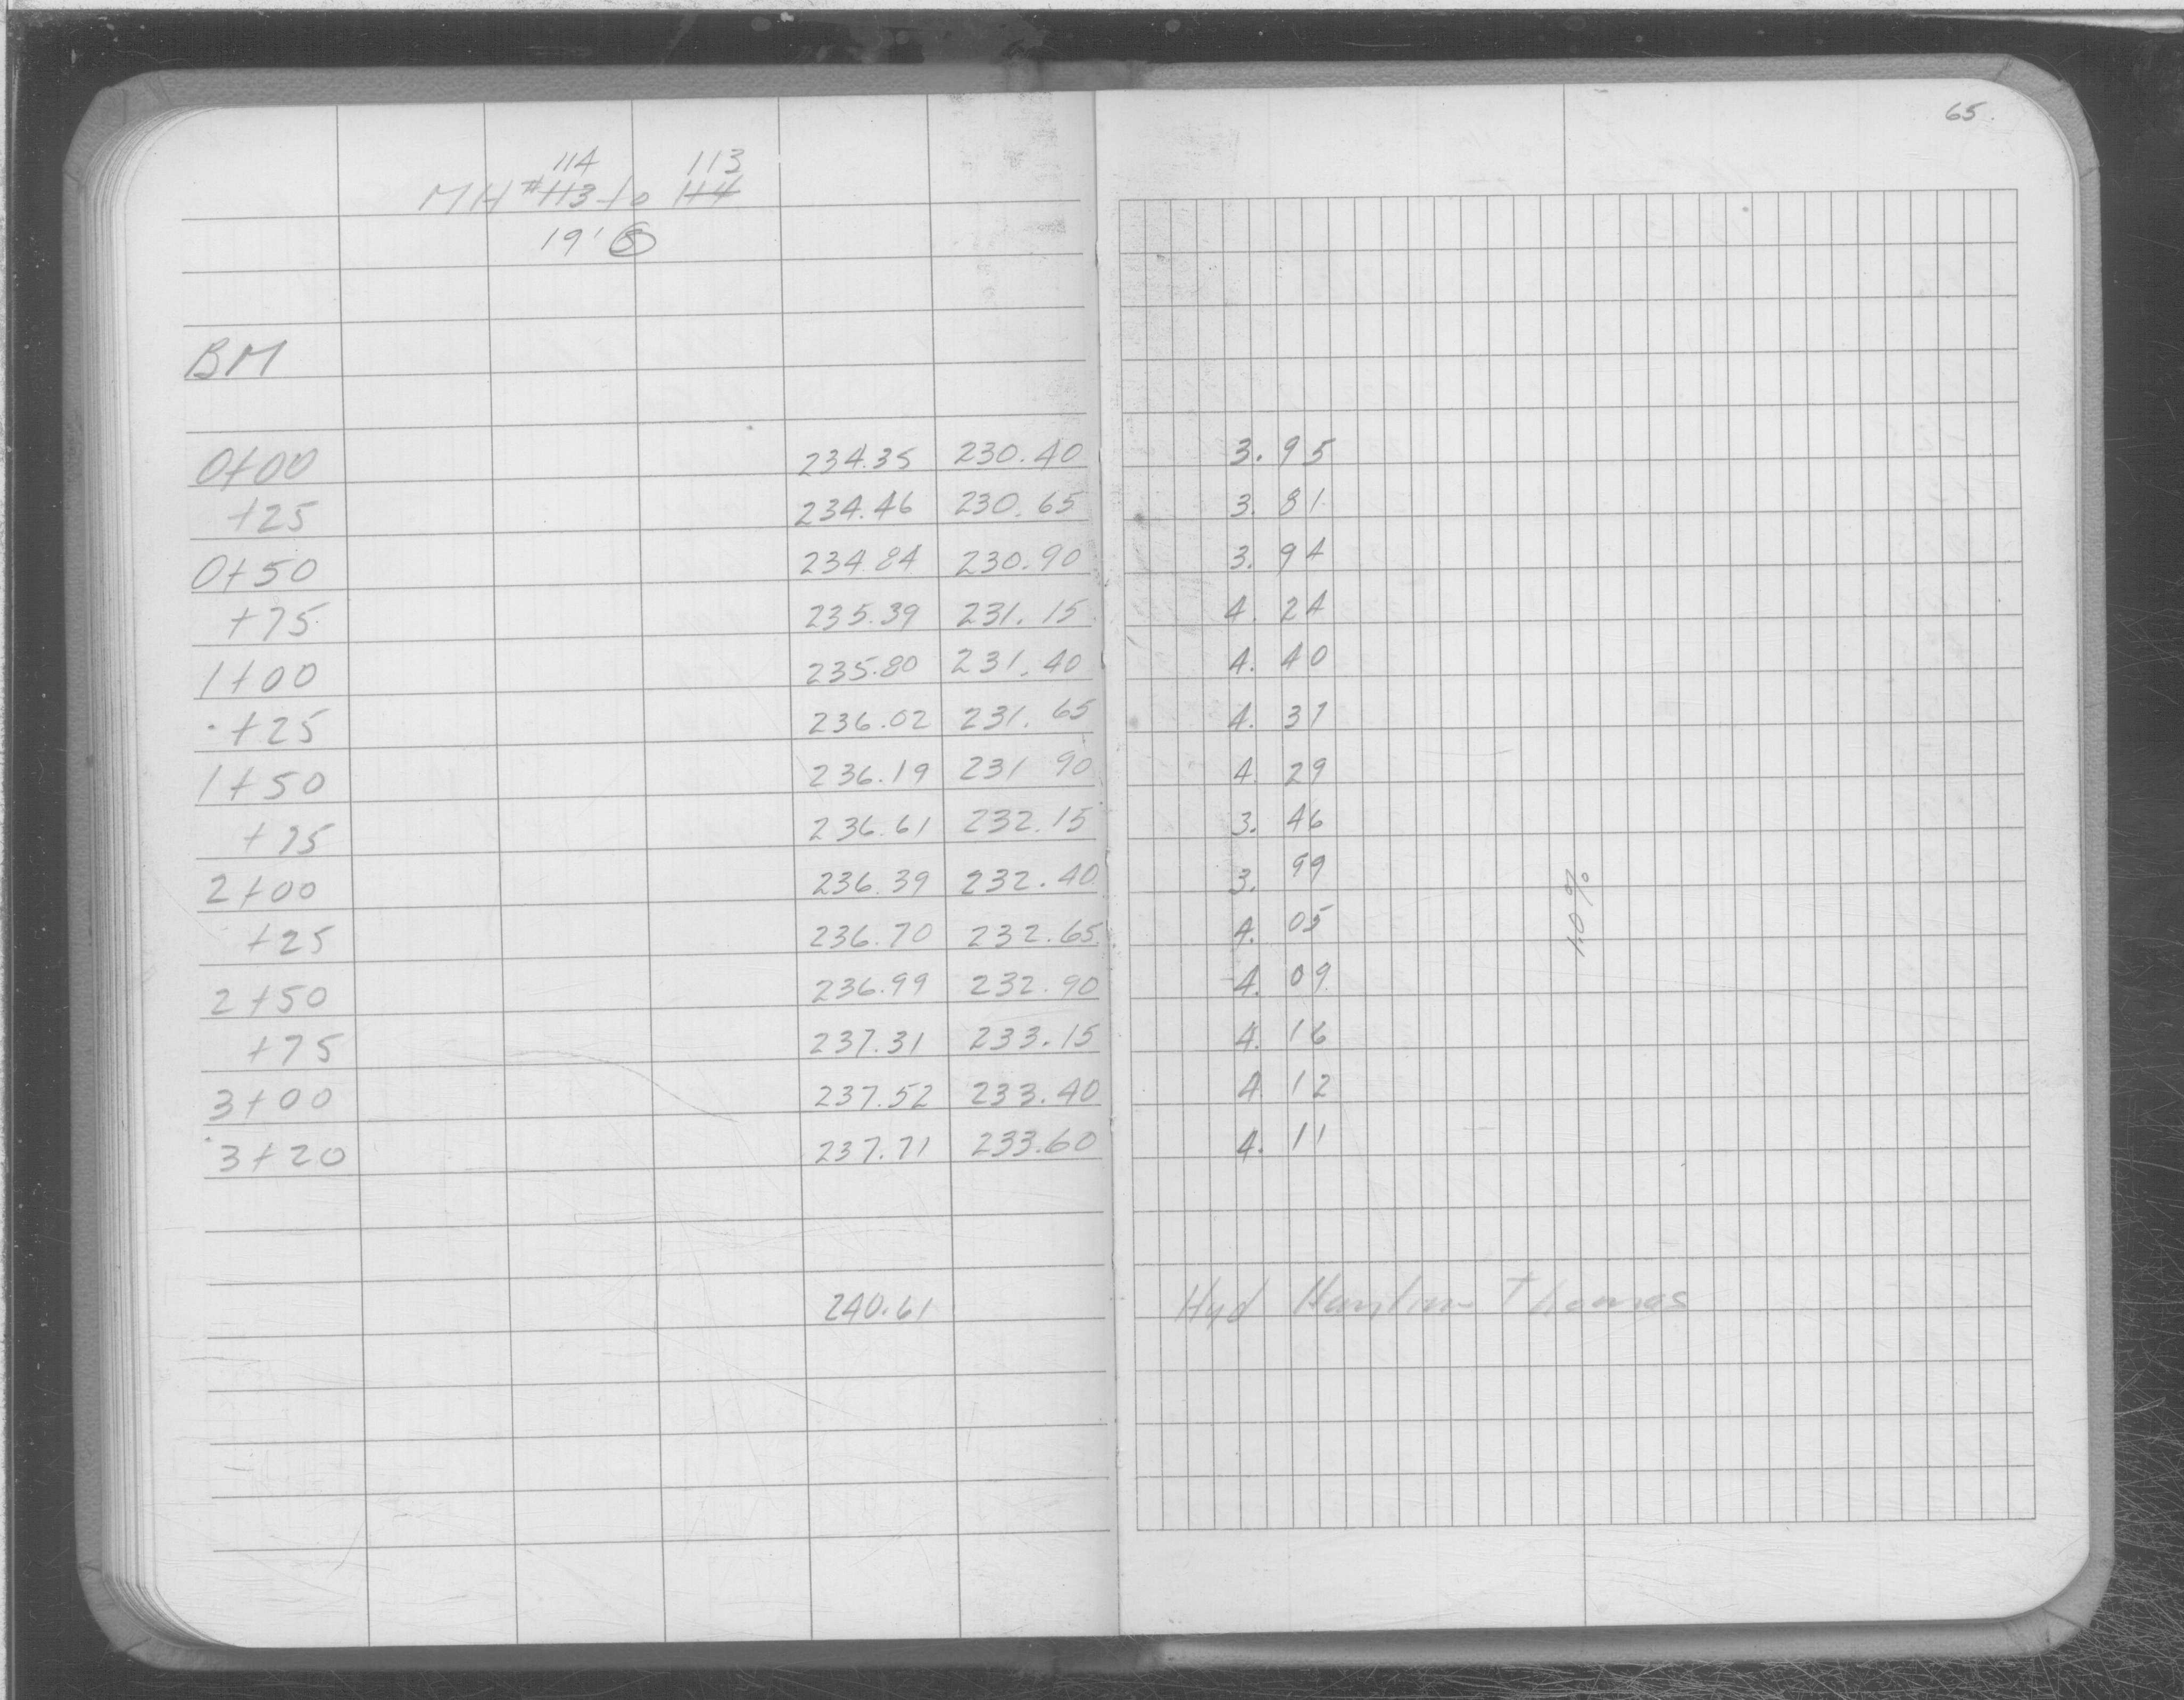 65.
114 113
MH #113 to 114
19' S
BM
0+00 234.35 230.40 3.95
+25 234.46 230.65 3.81
0+50 234.84 230.90 3.94
+75 235.39 231.15 4.24
1+00 235.80 231.40 4.40
+25 236.02 231.65 4.37
1+50 236.19 231 90 4.29
+75 236.61 232.15 3.46
2+00 236.39 232.40 3.99
+25 236.70 232.65 4.05
2+50 236.99 232.90 4.09
+75 237.31 233.15 4.16
3+00 237.52 233.40 4.12
3+20 237.71 233.60 4.11
1.0%
240.61 Hyd Thomas